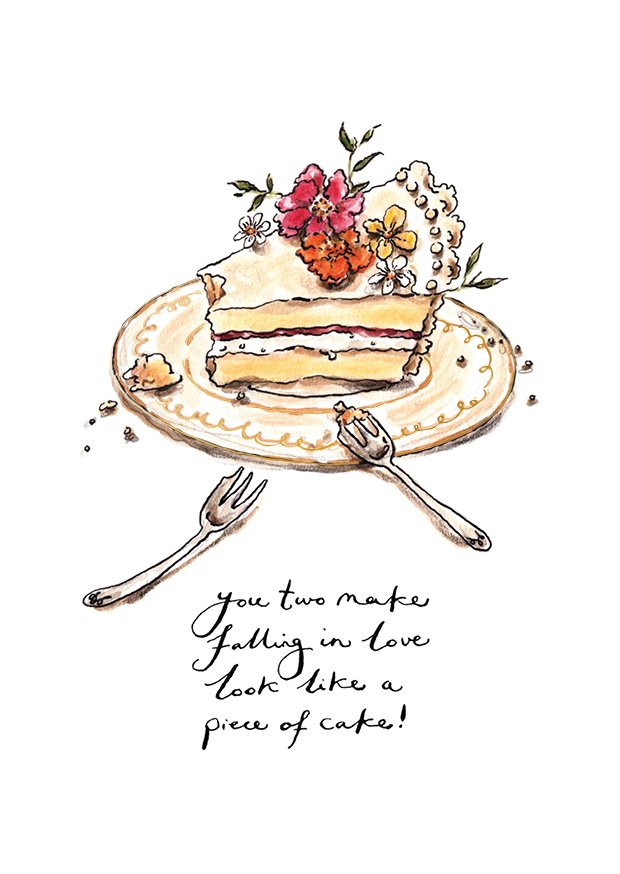 you two make
falling in love
look like a
piece of cake!